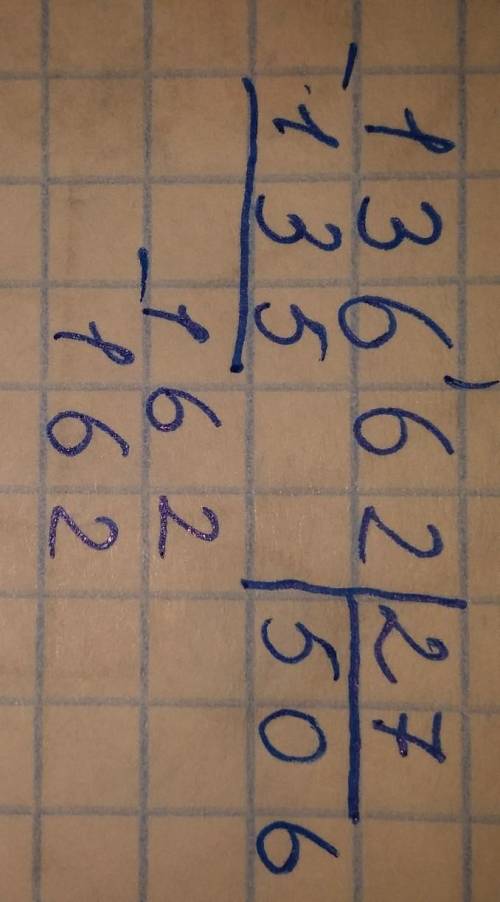 13662|27
-135 506
-162
162